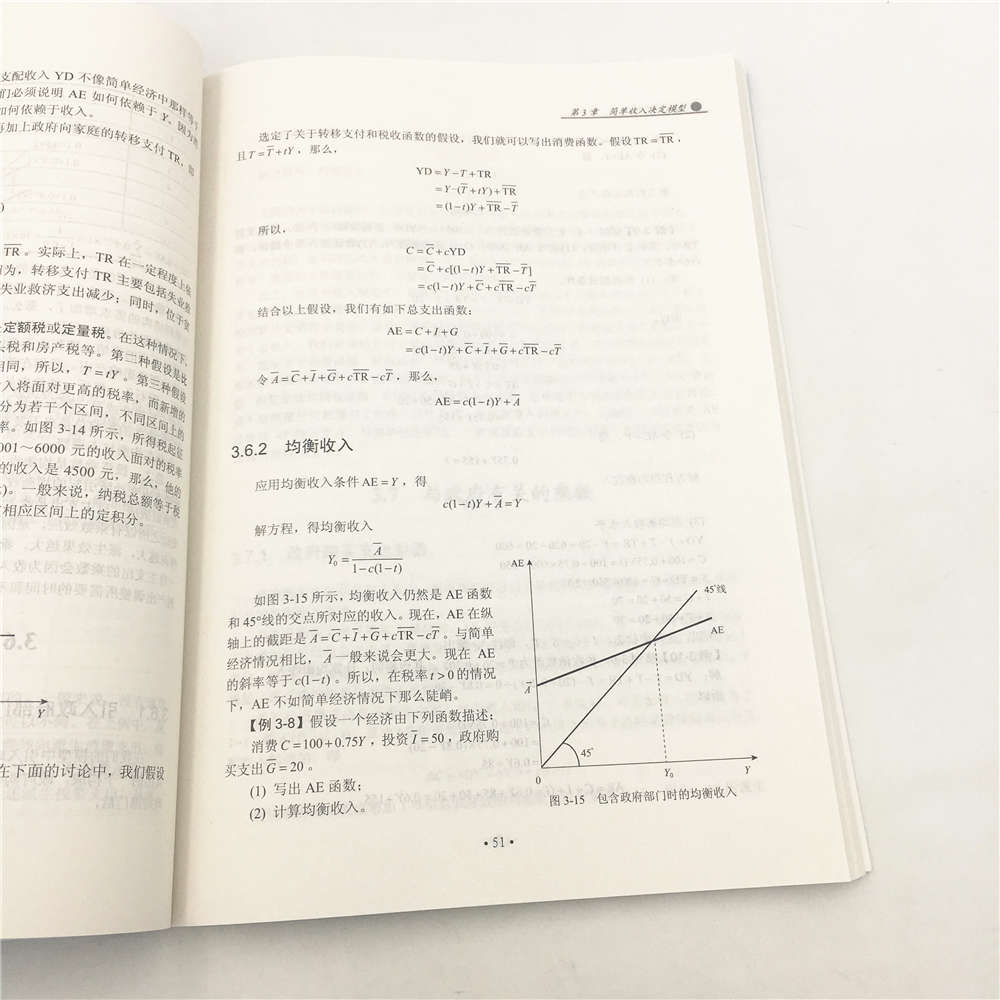 支配收入 YD 不像简单经济中那样等于
们必须说明 AE 如何依赖于 Y。因为消
如何依赖于收入。
再加上政府向家庭的转移支付 TR，即
TR。实际上，TR 在一定程度上依
因为，转移支付 TR 主要包括失业救
失业救济支出减少；同时，位于贫
定额税或定量税。在这种情况下，
头税和房产税等。第二种假设是比
相同，所以，T=tY。第三种假设
入将面对更高的税率，而新增的
分为若干个区间，不同区间上的
率。如图 3-14 所示，所得税起征
001～6000 元的收入面对的税率
的收入是 4500 元，那么，他的
)。一般来说，纳税总额等于税
相应区间上的定积分。
Y
在下面的讨论中，我们假设
第 3 章 简单收入决定模型
选定了关于转移支付和税收函数的假设，我们就可以写出消费函数。假设 TR = T̅R̅，
且 T = T̅ + tY，那么，
YD = Y − T + TR
= Y − (T̅ + tY) + T̅R̅
= (1−t)Y + T̅R̅ − T̅
所以，
C = C̅ + cYD
= C̅ + c[(1−t)Y + T̅R̅ − T̅]
= c(1−t)Y + C̅ + cT̅R̅ − cT̅
结合以上假设，我们有如下总支出函数：
AE = C + I + G
= c(1−t)Y + C̅ + I̅ + G̅ + cT̅R̅ − cT̅
令 A̅ = C̅ + I̅ + G̅ + cT̅R̅ − cT̅，那么，
AE = c(1−t)Y + A̅
3.6.2 均衡收入
应用均衡收入条件 AE = Y，得
c(1−t)Y + A̅ = Y
解方程，得均衡收入
Y₀ = A̅ / (1−c(1−t))
如图 3-15 所示，均衡收入仍然是 AE 函数
和 45°线的交点所对应的收入。现在，AE 在纵
轴上的截距是 A̅ = C̅ + I̅ + G̅ + cT̅R̅ − cT̅。与简单
经济情况相比，A̅ 一般来说会更大。现在 AE
的斜率等于 c(1−t)。所以，在税率 t > 0 的情况
下，AE 不如简单经济情况下那么陡峭。
【例 3-8】假设一个经济由下列函数描述：
消费 C = 100 + 0.75Y，投资 I̅ = 50，政府购
买支出 G̅ = 20。
(1) 写出 AE 函数；
(2) 计算均衡收入。
AE
45°线
AE
A̅
45°
0
Y₀
Y
图 3-15 包含政府部门时的均衡收入
·51·